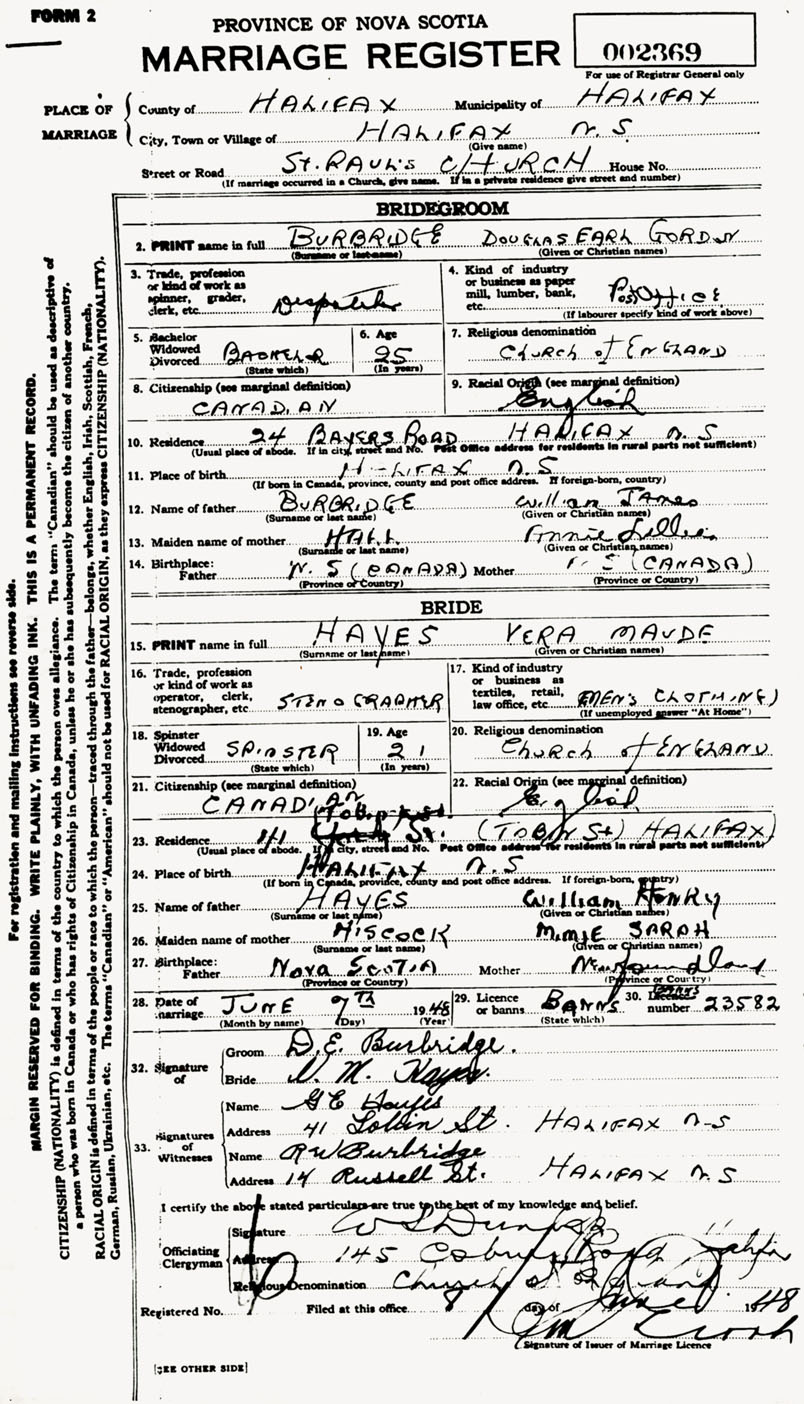 FORM 2
PROVINCE OF NOVA SCOTIA
MARRIAGE REGISTER
002369
For use of Registrar General only
PLACE OF MARRIAGE
County of HALIFAX Municipality of HALIFAX
City, Town or Village of HALIFAX N. S.
(Give name)
Street or Road St. PAUL'S CHURCH House No.
(If marriage occurred in a Church, give name. If in a private residence give street and number)
BRIDEGROOM
2. PRINT name in full BURBRIDGE DOUGLAS EARL GORDON
(Surname or last name) (Given or Christian names)
3. Trade, profession or kind of work as spinner, grader, clerk, etc.
4. Kind of industry or business as paper mill, lumber, bank, etc. Post Office
(If labourer specify kind of work above)
5. Bachelor Widowed Divorced BACHELOR
(State which)
6. Age 25
(In years)
7. Religious denomination CHURCH of ENGLAND
8. Citizenship (see marginal definition)
CANADIAN
9. Racial Origin (see marginal definition)
English
10. Residence 24 BAYERS ROAD HALIFAX N. S
(Usual place of abode. If in city, street and No. Post Office address for residents in rural parts not sufficient)
11. Place of birth H-LIFAX N. S
(If born in Canada, province, county and post office address. If foreign-born, country)
12. Name of father BURBRIDGE William James
(Surname or last name) (Given or Christian names)
13. Maiden name of mother HALL Lillian
(Surname or last name) (Given or Christian names)
14. Birthplace: Father N. S (CANADA) Mother N. S (CANADA)
(Province or Country) (Province or Country)
BRIDE
15. PRINT name in full HAYES VERA MAUDE
(Surname or last name) (Given or Christian names)
16. Trade, profession or kind of work as operator, clerk, stenographer, etc STENOGRAPHER
17. Kind of industry or business as textiles, retail, law office, etc (MEN'S CLOTHING)
(If unemployed answer "At Home")
18. Spinster Widowed Divorced SPINSTER
(State which)
19. Age 21
(In years)
20. Religious denomination
Church of ENGLAND
21. Citizenship (see marginal definition)
CANADIAN
22. Racial Origin (see marginal definition)
English
Tobin St.
23. Residence 41 St. (TOBIN St) HALIFAX
(Usual place of abode. If in city, street and No. Post Office address for residents in rural parts not sufficient)
24. Place of birth HALIFAX N. S
(If born in Canada, province, county and post office address. If foreign-born, country)
25. Name of father HAYES William Henry
(Surname or last name) (Given or Christian names)
26. Maiden name of mother HISCOCK MIMIE SARAH
(Surname or last name) (Given or Christian names)
27. Birthplace: Father NOVA SCOTIA Mother Newfoundland
(Province or Country) (Province or Country)
28. Date of marriage JUNE 7TH 1948
(Month by name) (Day) (Year)
29. Licence or banns BANNS
(State which)
30. Licence Banns number 23582
32. Signature of
Groom D. E. Burbridge.
Bride V. M. Hayes.
33. Signatures of Witnesses
Name G E Hayes
Address 41 Tobin St. HALIFAX N-S
Name R W Burbridge
Address 14 Russell St. HALIFAX N. S
I certify the above stated particulars are true to the best of my knowledge and belief.
Officiating Clergyman
Signature W S Dunlop
Address 145 Coburg Road Halifax
Religious Denomination Church of England
Registered No. Filed at this office 8 day of June 1948
Signature of Issuer of Marriage Licence
[SEE OTHER SIDE]
For registration and mailing instructions see reverse side.
MARGIN RESERVED FOR BINDING. WRITE PLAINLY, WITH UNFADING INK. THIS IS A PERMANENT RECORD.
CITIZENSHIP (NATIONALITY) is defined in terms of the country to which the person owes allegiance. The term "Canadian" should be used as descriptive of
a person who was born in Canada or who has rights of Citizenship in Canada, unless he or she has subsequently become the citizen of another country.
RACIAL ORIGIN is defined in terms of the people or race to which the person—traced through the father—belongs, whether English, Irish, Scottish, French,
German, Russian, Ukrainian, etc. The terms "Canadian" or "American" should not be used for RACIAL ORIGIN, as they express CITIZENSHIP (NATIONALITY).